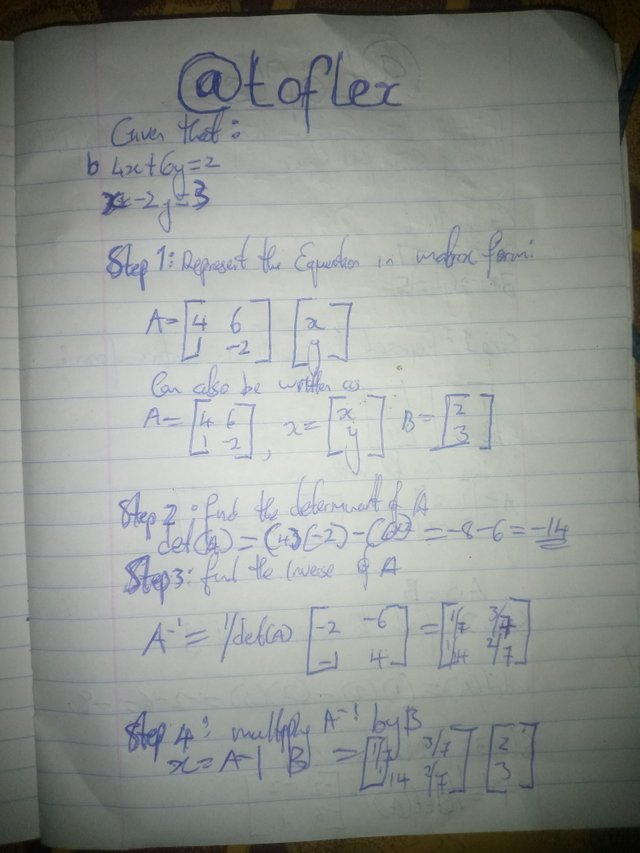 @toflex
Given that:
b 4x+6y=2
x-2y=3
Step 1: Represent the Equation in matrix form:
A=[4 6 1 -2] [x y]
Can also be written as
A=[4 6 1 -2], x=[x y] B=[2 3]
Step 2: find the determinant of A
det(A) = (4)(-2)-(6)(1) = -8-6=-14
Step3: find the inverse of A
A⁻¹= 1/det(A) [-2 -6 -1 4] = [1/7 3/7 1/14 2/7]
Step 4: multiply A⁻¹ by B
x=A-1 B = [1/7 3/7 1/14 2/7] [2 3]